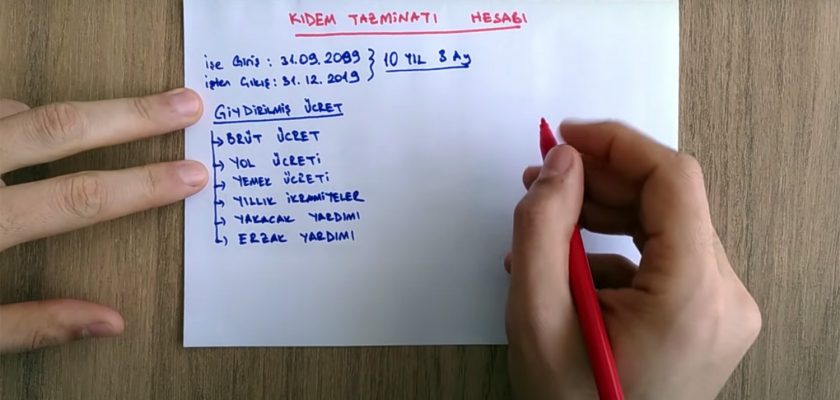 KIDEM TAZMİNATI HESABI
İşe Giriş : 31.09.2009 } 10 YIL 3 Ay
İşten Çıkış : 31.12.2019
GİYDİRİLMİŞ ÜCRET
BRÜT ÜCRET
YOL ÜCRETİ
YEMEK ÜCRETİ
YILLIK İKRAMİYELER
YAKACAK YARDIMI
ERZAK YARDIMI